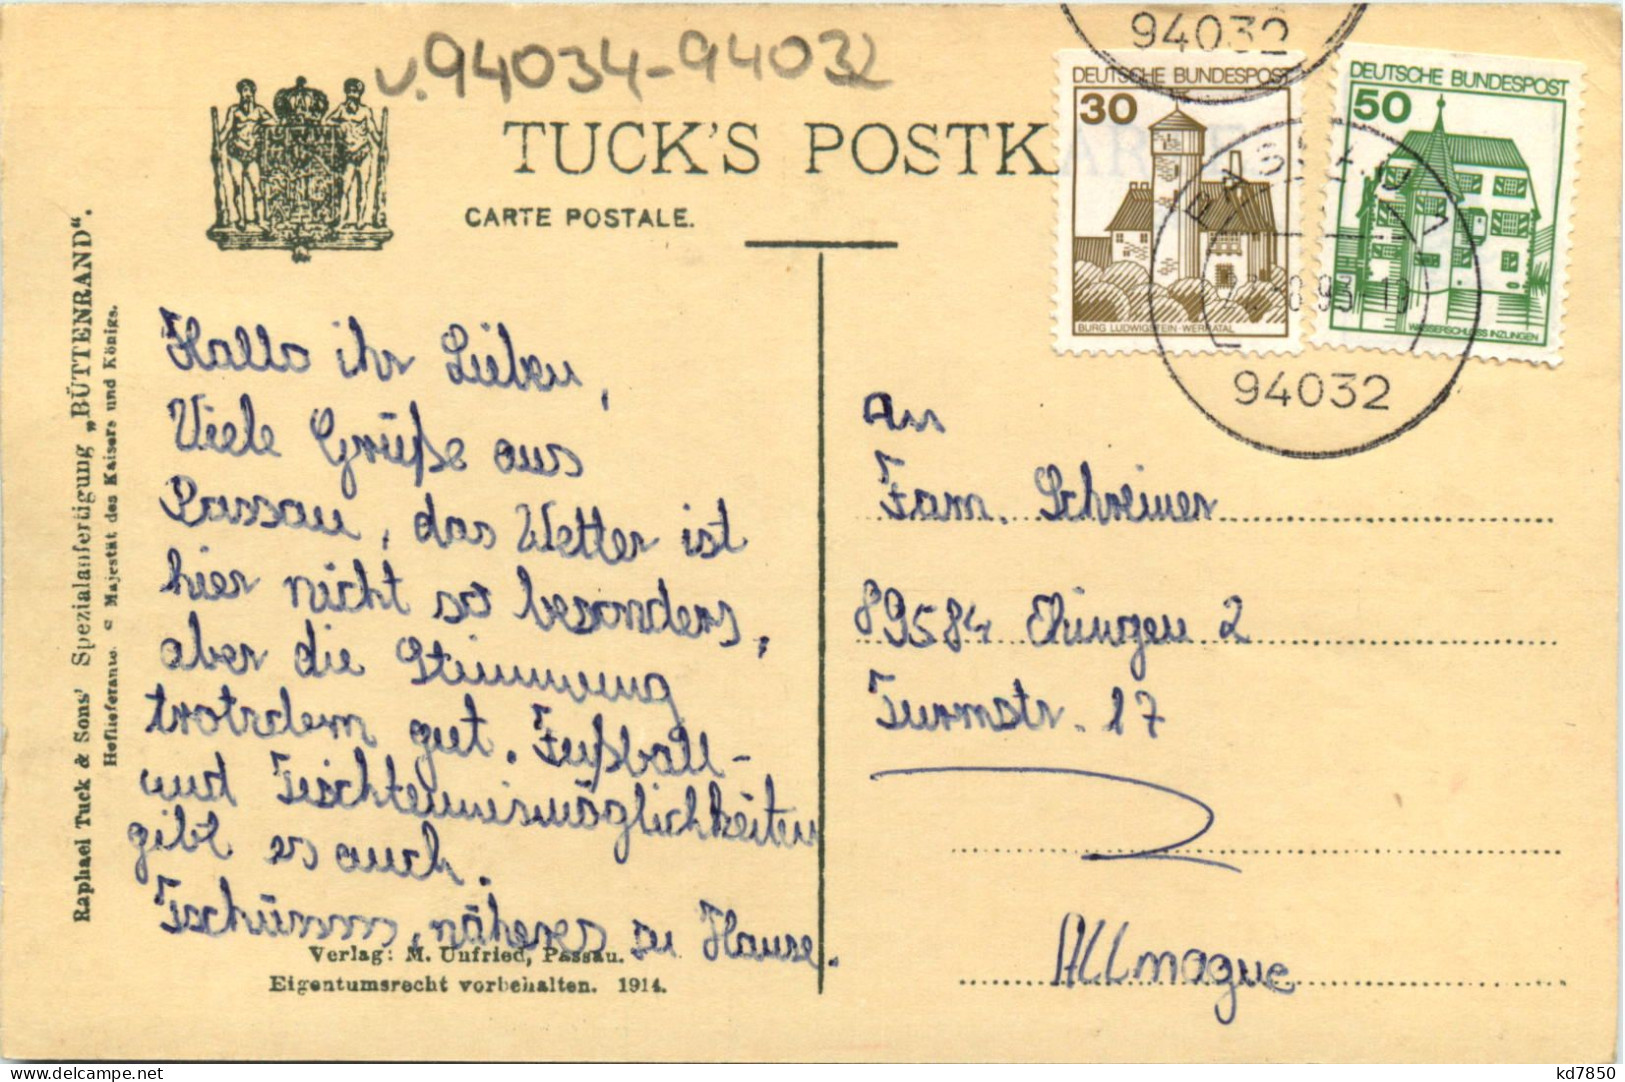 v. 94034-94032
TUCK'S POSTKARTE
CARTE POSTALE.
94032
DEUTSCHE BUNDESPOST
30
BURG LUDWIGSTEIN · WERRATAL
DEUTSCHE BUNDESPOST
50
WASSERSCHLOSS INZLINGEN
PASSAU 1
93-19
94032
Raphael Tuck & Sons' Spezialanfertigung „BÜTTENRAND".
Majestät des Kaisers und Königs.
Hallo ihr Lieben,
Viele Grüße aus
Passau, das Wetter ist
hier nicht so besonders,
aber die Stimmung
trotzdem gut. Fußball-
und Tischtennismöglichkeiten
gibt es auch.
Tschümms, näheres zu Hause.
Verlag: M. Unfried, Passau.
Eigentumsrecht vorbehalten. 1914.
An
Fam. Schreiner
89584 Ehingen 2
Turmstr. 17
ALLmague
kd7850